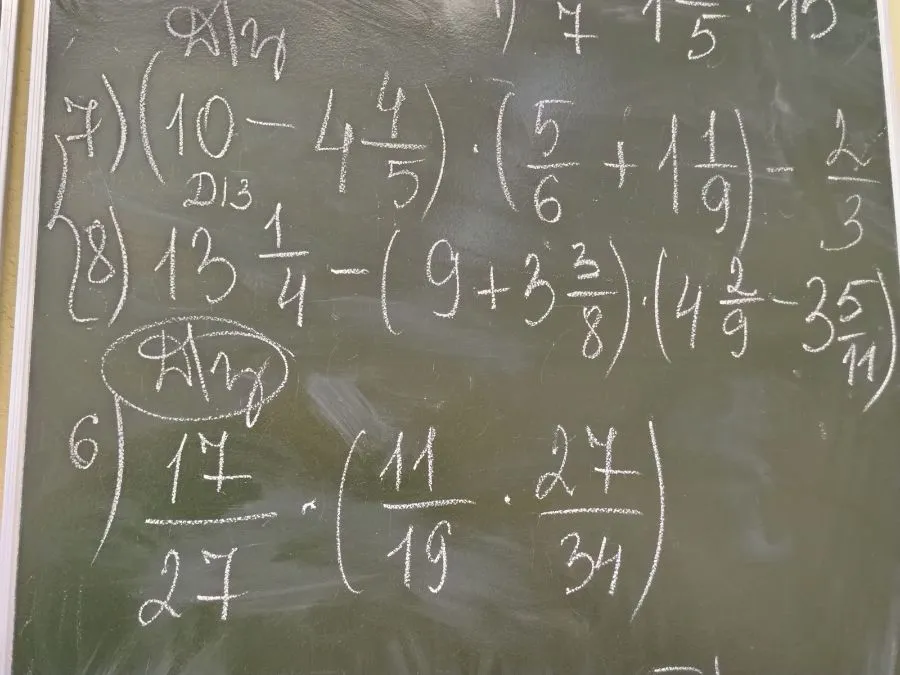 Д/з
7) (10 - 4 4/5) · (5/6 + 1 1/9) - 2/3
Д/з
8) 13 1/4 - (9 + 3 3/8) · (4 2/9 - 3 5/11)
Д/з
6) 17/27 · (11/19 · 27/34)